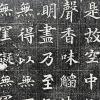 是故空中
聲香味觸
明盡乃至
無得以無